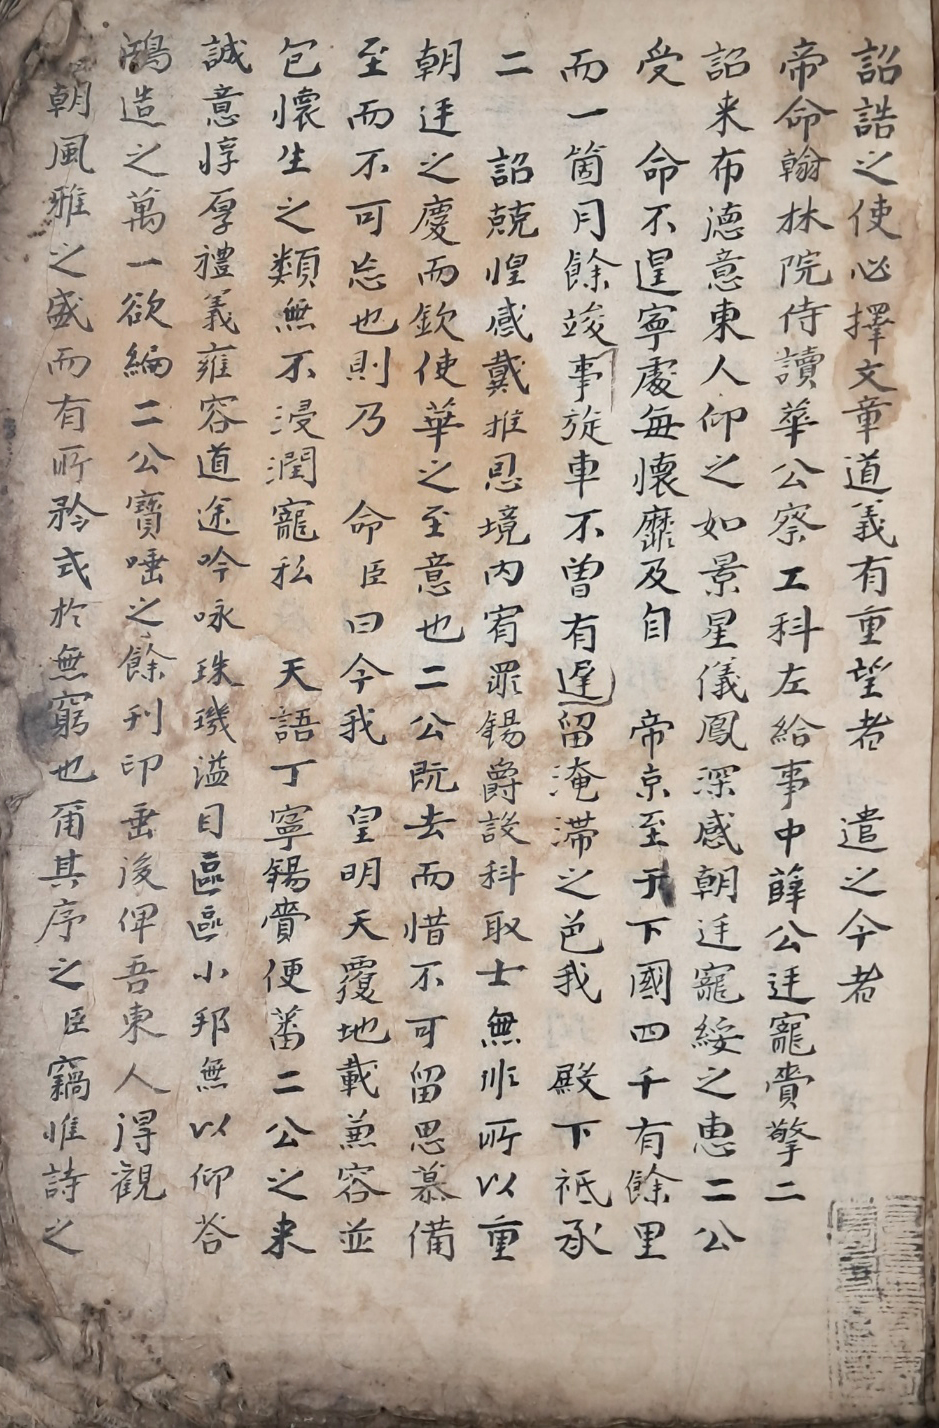 詔誥之使必擇文章道義有重望者　遣之今者
帝命翰林院侍讀華公察工科左給事中薛公廷寵賫擎二
詔来布德意東人仰之如景星儀鳳深感朝廷寵綏之恵二公
受　命不遑寧處每懷靡及自　帝京至于下國四千有餘里
而一箇月餘竣事旋車不曾有遲留淹滞之色我　殿下祗承
二　詔兢惶感戴推恩境内宥罪錫爵設科取士無非所以重
朝廷之慶而欽使華之至意也二公既去而惜不可留思慕備
至而不可忘也則乃　命臣曰今我　皇明天覆地載兼容並
包懷生之類無不浸潤寵私　天語丁寧錫賫便蕃二公之来
誠意惇厚禮義雍容道途吟咏珠璣溢目區區小邦無以仰答
鴻造之萬一欲編二公寶唾之餘刊印垂後俾吾東人得觀
朝風雅之盛而有所矜式於無窮也爾其序之臣竊惟詩之